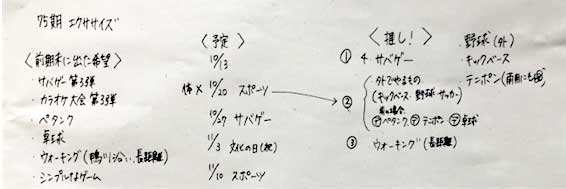 75期 エクササイズ
<前期末に出た希望>
・サバゲー第3弾
・カラオケ大会 第3弾
・ペタンク
・卓球
・ウォーキング(鴨川沿い、長距離)
・シンプルなゲーム
<予定>
10/13
体× 10/20 スポーツ
10/27 サバゲー
11/3 文化の日(祝)
11/10 スポーツ
<推し!>
① 4. サバゲー
② ・外でやるもの
(キックベース・野球 サッカー)
雨の場合
ペタンク テニポン 卓球
③ ウォーキング(長距離)
・野球(外)
・キックベース
・テニポン(雨用にも